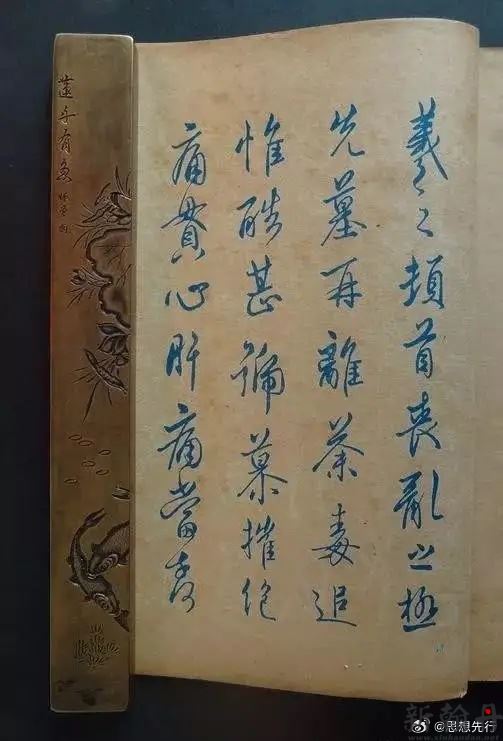 羲之頓首喪亂之極
先墓再離荼毒追
惟酷甚號慕摧絕
痛貫心肝痛當奈
蓮年有魚
@思想先行